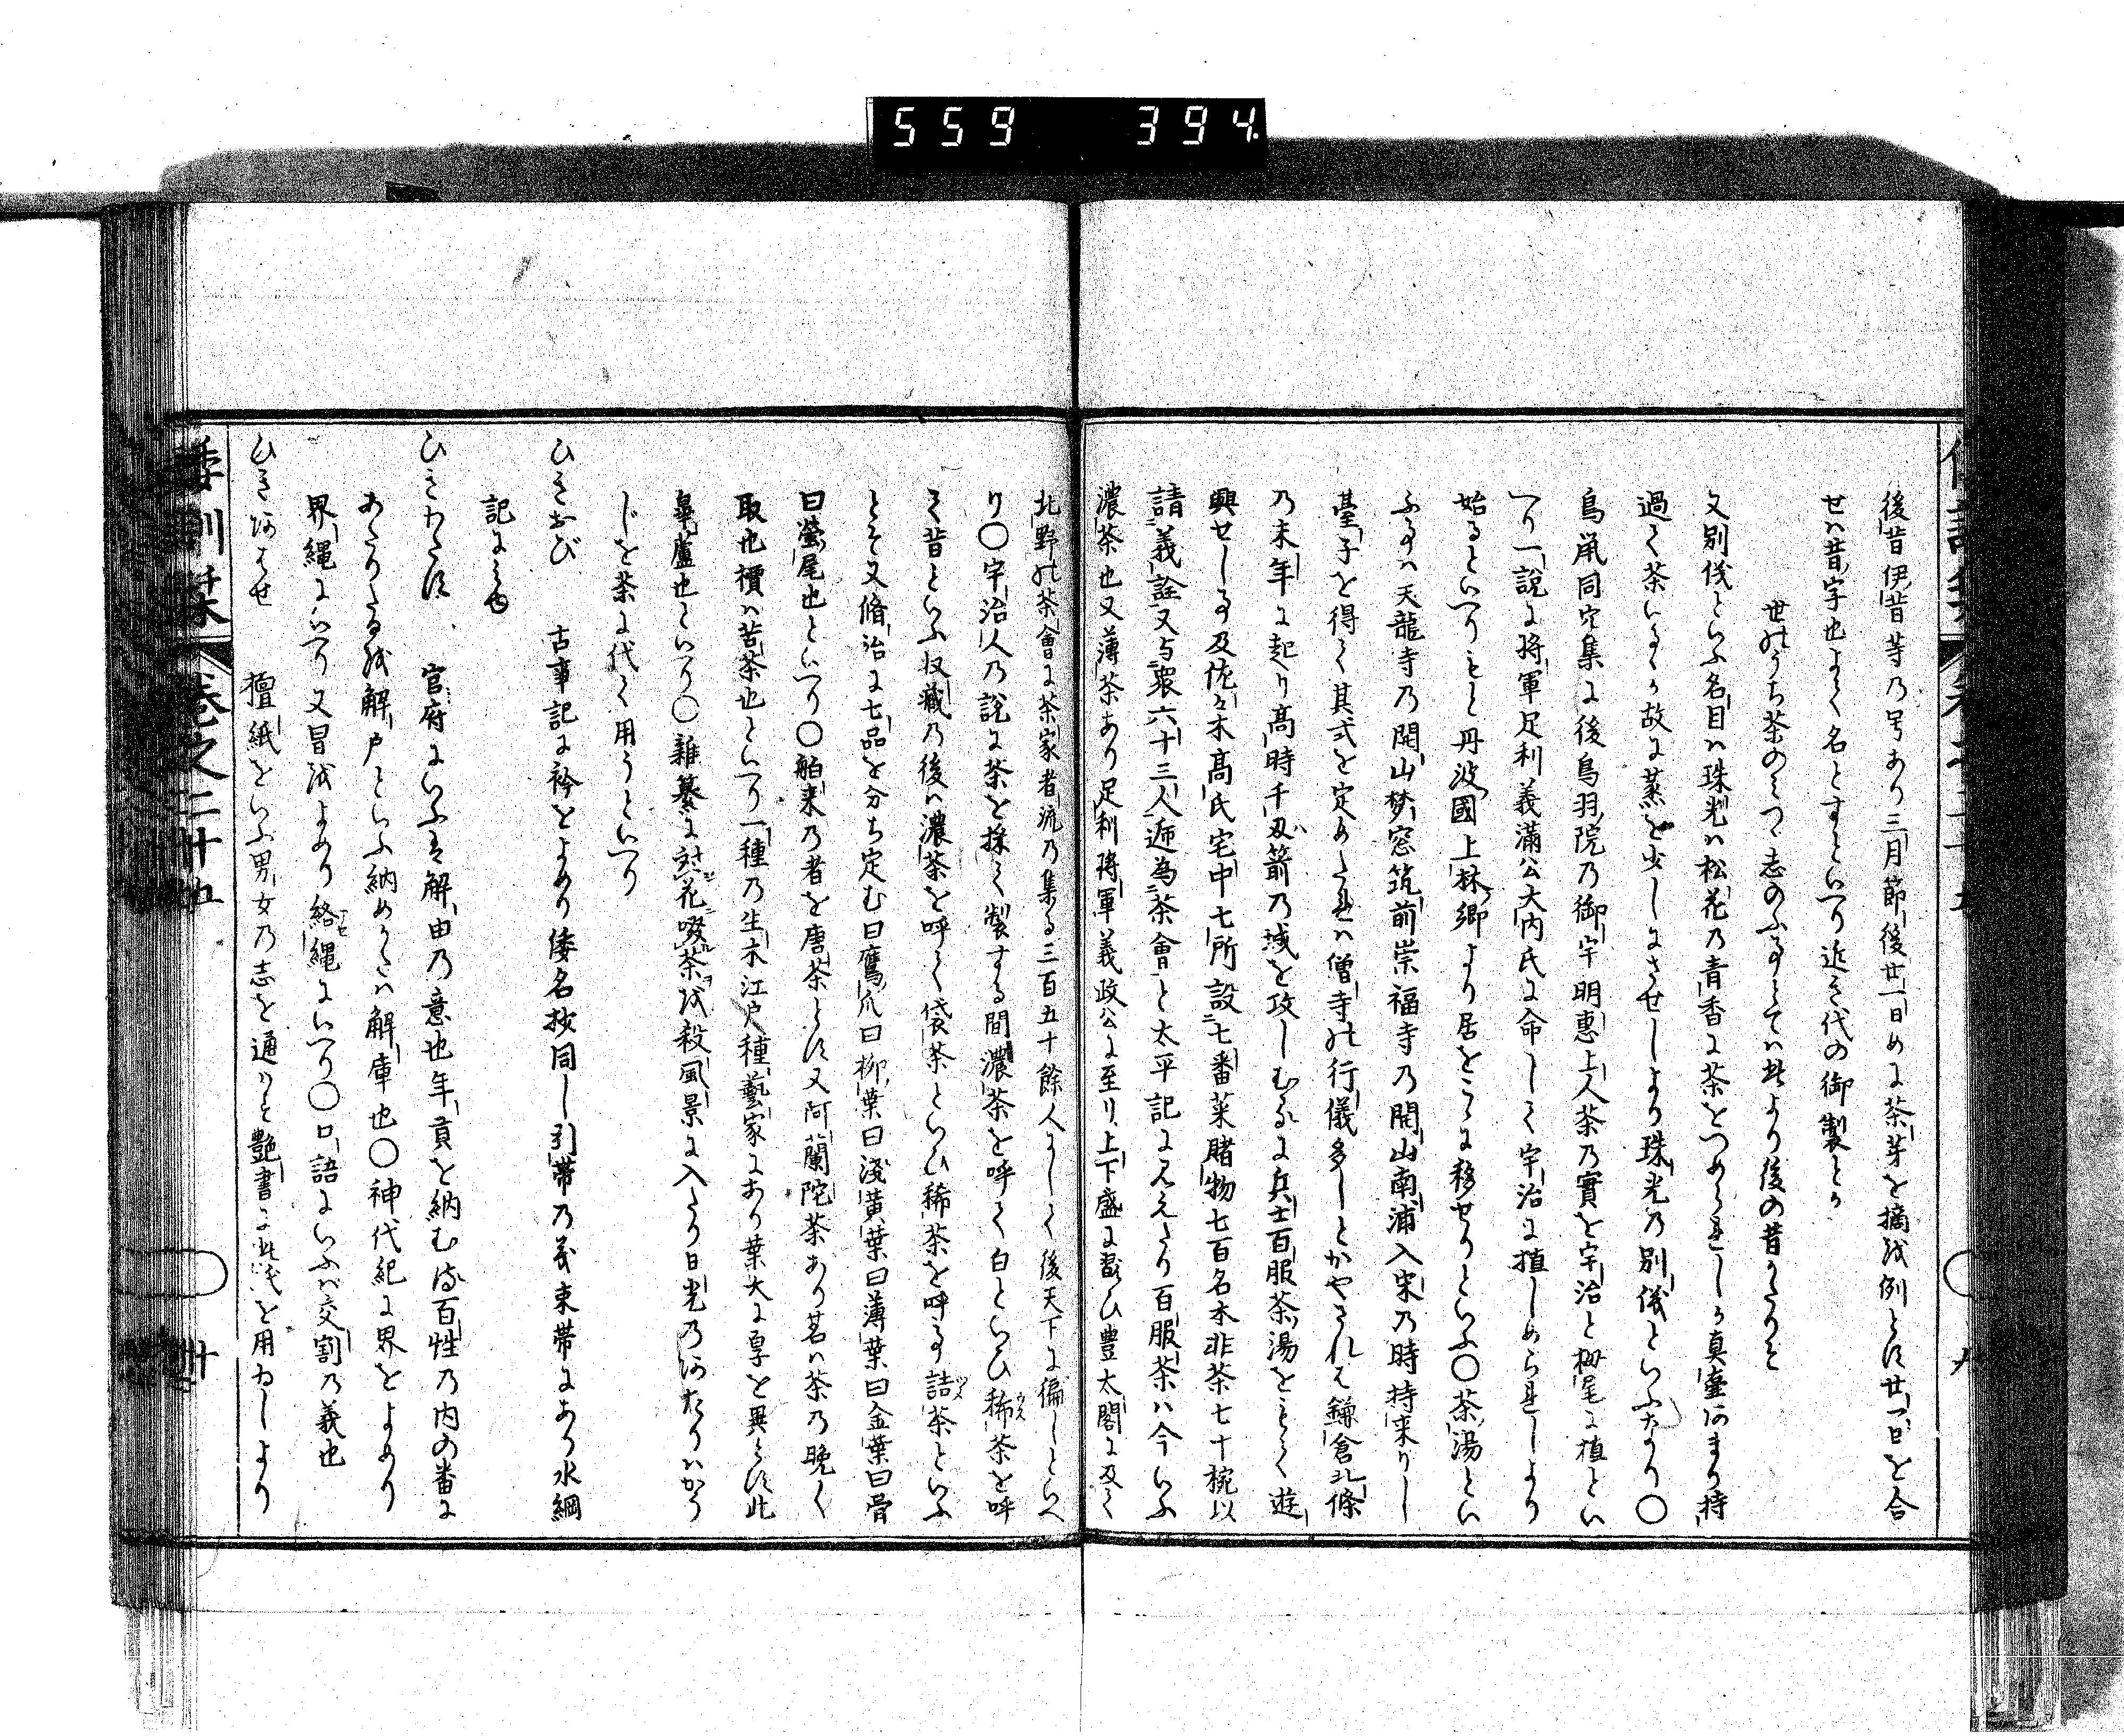 559 394
後昔伊昔等乃号あり三月節後廿一日めに茶芽を摘を例とす廿一日を合
せハ昔字也よて名とすといへり近き代の御製とか
世のうち茶のみつゝ志のふるとてハ此より後の昔かたりを
又別儀といふ名目ハ珠光ハ松花乃青香に茶をつめられしか真壷あまり持
過て茶いるゝか故に蒸を少しにさせしより珠光乃別儀といふなり〇
鳥鼠同穴集に後鳥羽院乃御宇明惠上人茶乃實を宇治と栂尾に植とい
へり一説に将軍足利義滿公大内氏に命して宇治に植しめられしより
始るといへりもと丹波國上林郷より居をこゝに移せりといふ〇茶湯とい
ふ事ハ天龍寺乃開山夢窓筑前崇福寺乃開山南浦入宋乃時持来りし
臺子を得て其式を定めたれハ僧寺の行儀多しとかやされと鎌倉北條
乃末年に起り髙時千刄箭乃城を攻しむるに兵士百服茶湯をもて遊
興せし事及佐々木髙氏宅中七所設七番菜賭物七百名本非茶七十椀以
請義詮又与衆六十三人遞為茶會と太平記に見えたり百服茶ハ今いふ
濃茶也又薄茶あり足利將軍義政公に至り上下盛に翫ひ豊太閤に及て
北野の茶會に茶家者流乃集る三百五十餘人にして後天下に徧しといへ
り〇宇治人乃説に茶を採て製する間濃茶を呼て白といひ稀茶を呼
て昔といふ収蔵乃後ハ濃茶を呼て袋茶といひ稀茶を呼事詰茶といふ
とそ又脩治に七品を分ち定む曰鷹爪曰柳葉曰淺黄葉曰薄葉曰金葉曰骨
曰鶯尾也といへり〇舶来乃者を唐茶とす又阿蘭陀茶あり茗ハ茶乃晩く
取也檟ハ苦茶也といへり一種乃生木江戸種藝家にあり葉大に厚を異とす此
皐蘆也といへり〇雜纂に對花啜茶を殺風景に入たり日光乃あたりハかう
じを茶に代て用うといへり
ひきおび 古事記に衿をよめり倭名抄同し引帯乃义束帯にあり水綱
記にみゆ
ひきわたす 官府にいふハ解由乃意也年貢を納む時百姓乃内の番に
あたりたるを解戸といふ納めたハ解庫也〇神代紀に界をよめり
界縄にいへり又冒をよめり絡縄にいへり〇口語にいふハ交割乃義也
ひきあはせ 檀紙をいふ男女乃志を通ハす艶書に此を用ゐしより
倭訓栞 巻之二十五 〇 卅